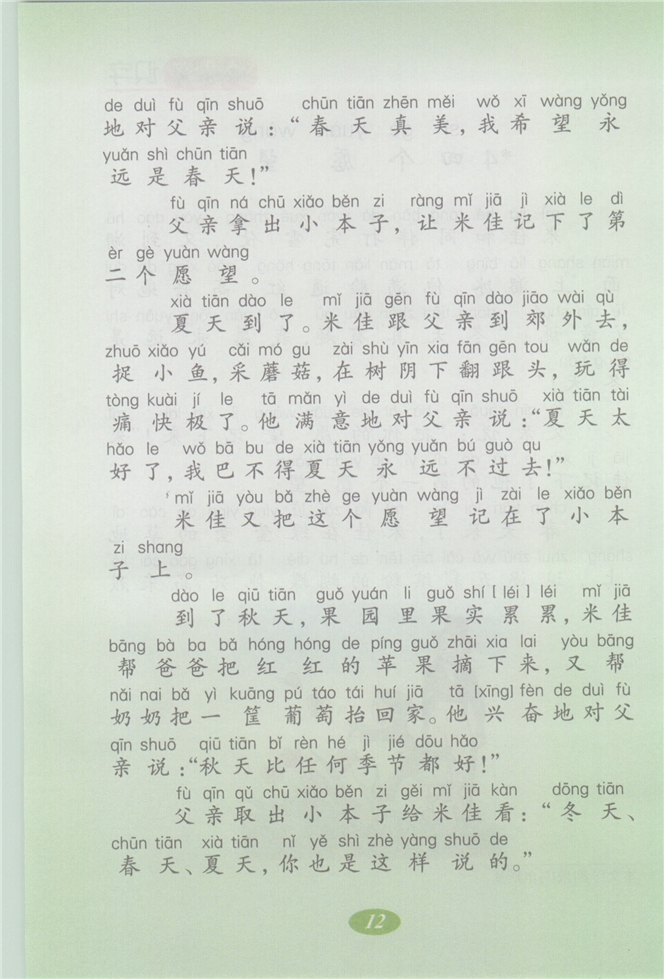 de duì fù qīn shuō chūn tiān zhēn měi wǒ xī wàng yǒng
地对父亲说：“春天真美，我希望永
yuǎn shì chūn tiān
远是春天！”
fù qīn ná chū xiǎo běn zi ràng mǐ jiā jì xià le dì
父亲拿出小本子，让米佳记下了第
èr gè yuàn wàng
二个愿望。
xià tiān dào le mǐ jiā gēn fù qīn dào jiāo wài qù
夏天到了。米佳跟父亲到郊外去，
zhuō xiǎo yú cǎi mó gu zài shù yīn xia fān gēn tou wǎn de
捉小鱼，采蘑菇，在树阴下翻跟头，玩得
tòng kuài jí le tā mǎn yì de duì fù qīn shuō xià tiān tài
痛快极了。他满意地对父亲说：“夏天太
hǎo le wǒ bā bu de xià tiān yǒng yuǎn bú guò qu
好了，我巴不得夏天永远不过去！”
mǐ jiā yòu bǎ zhè ge yuàn wàng jì zài le xiǎo běn
米佳又把这个愿望记在了小本
zi shang
子上。
dào le qiū tiān guǒ yuán li guǒ shí [léi] léi mǐ jiā
到了秋天，果园里果实累累，米佳
bāng bà ba bǎ hóng hóng de píng guǒ zhāi xia lai yòu bāng
帮爸爸把红红的苹果摘下来，又帮
nǎi nai bǎ yì kuāng pú táo tái huí jiā tā [xīng] fèn de duì fù
奶奶把一筐葡萄抬回家。他兴奋地对父
qīn shuō qiū tiān bǐ rèn hé jì jié dōu hǎo
亲说：“秋天比任何季节都好！”
fù qīn qǔ chū xiǎo běn zi gěi mǐ jiā kàn dōng tiān
父亲取出小本子给米佳看：“冬天、
chūn tiān xià tiān nǐ yě shì zhè yàng shuō de
春天、夏天，你也是这样说的。”
12